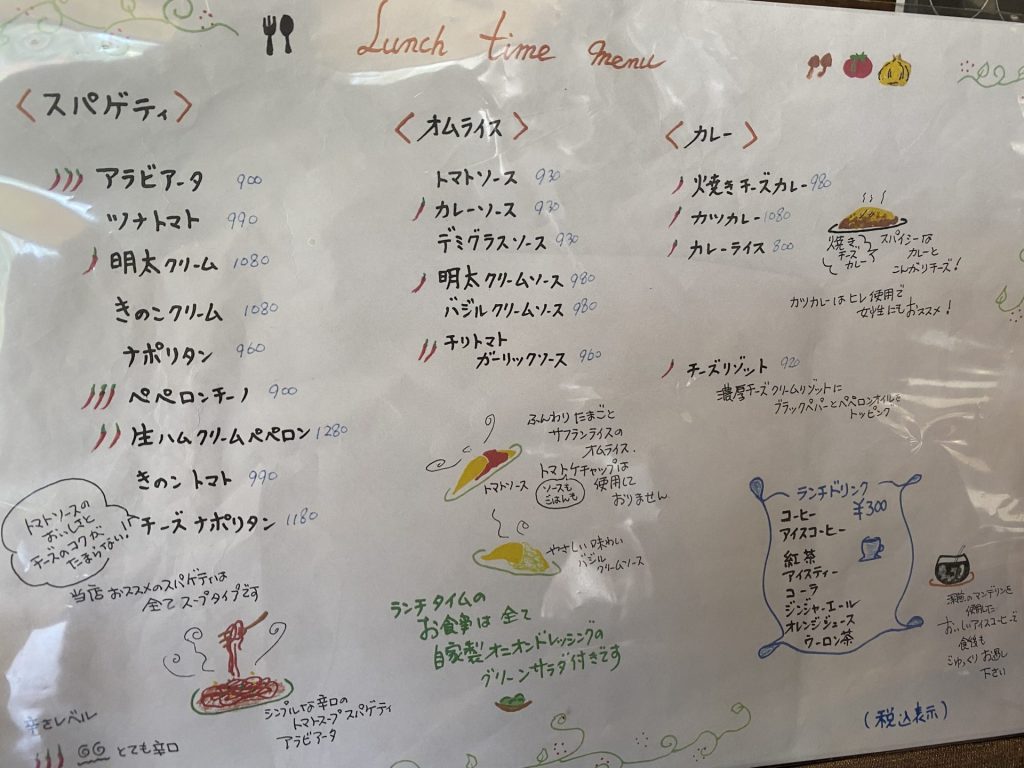 Lunch time menu
<スパゲティ>
アラビアータ 900
ツナトマト 990
明太クリーム 1080
きのこクリーム 1080
ナポリタン 960
ペペロンチーノ 900
生ハムクリームペペロン 1280
きのこトマト 990
チーズナポリタン 1180
トマトソースの
おいしさと
チーズのコクが
たまらない!!
当店おススメのスパゲティは
全てスープタイプです
シンプルな辛口の
トマトスープスパゲティ
アラビアータ
辛さレベル
とても辛口
<オムライス>
トマトソース 930
カレーソース 930
デミグラスソース 930
明太クリームソース 980
バジルクリームソース 980
チリトマト
ガーリックソース 960
ふんわりたまごと
サフランライスの
オムライス.
トマトケチャップは
使用して
おりません
ソースも
ごはんも
トマトソース
やさしい味わい
バジル
クリームソース
ランチタイムの
お食事は全て
自家製オニオンドレッシングの
グリーンサラダ付きです
<カレー>
焼きチーズカレー 980
カツカレー 1080
カレーライス 800
焼き
チーズ
カレー
スパイシーな
カレーと
こんがりチーズ!
カツカレーはヒレ使用で
女性にもおススメ!
チーズリゾット 920
濃厚チーズクリームリゾットに
ブラックペパーとペペロンオイルを
トッピング
ランチドリンク
¥300
コーヒー
アイスコーヒー
紅茶
アイスティー
コーラ
ジンジャーエール
オレンジジュース
ウーロン茶
深煎のマンデリンを
使用した
おいしいアイスコーヒーで
食後も
ごゆっくりお過し
下さい
(税込表示)